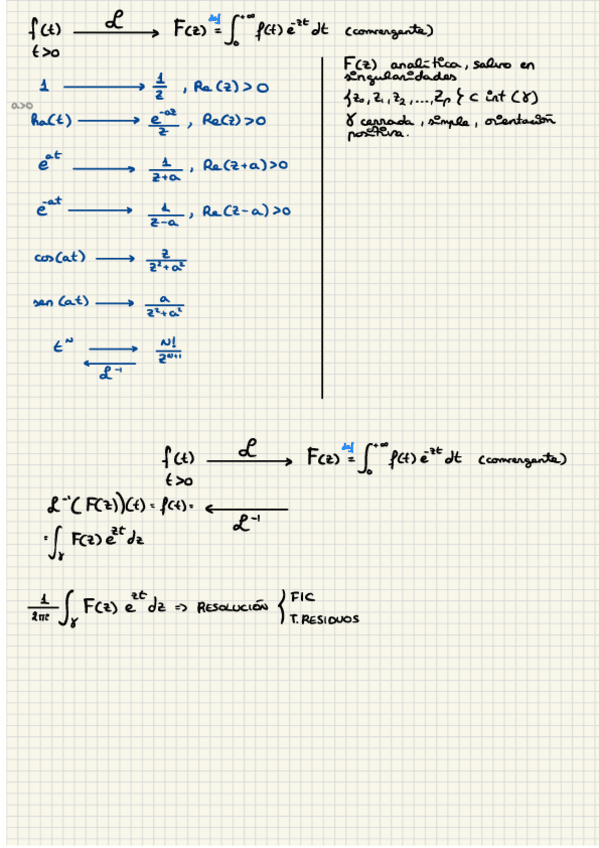 f(t) ℒ F(z) def = ∫₀^{+∞} f(t) e^{-zt} dt (convergente)
t>0
1 → 1/z , Re(z)>0
a>0
ha(t) → e^{-az}/z , Re(z)>0
e^{at} → 1/(z+a) , Re(z+a)>0
e^{-at} → 1/(z-a) , Re(z-a)>0
cos(at) → z/(z²+a²)
sen(at) → a/(z²+a²)
t^N → N!/z^{N+1}
ℒ⁻¹
F(z) analítica, salvo en
singularidades
{z₀, z₁, z₂, ..., zₚ} ⊂ int(γ)
γ cerrada, simple, orientación
positiva.
f(t) ℒ → F(z) def = ∫₀^{+∞} f(t) e^{-zt} dt (convergente)
t>0
ℒ⁻¹(F(z))(t) = f(t) = ←
ℒ⁻¹
= ∫_γ F(z) e^{zt} dz
1/2πi ∫_γ F(z) e^{zt} dz => RESOLUCIÓN { FIC
T. RESIDUOS